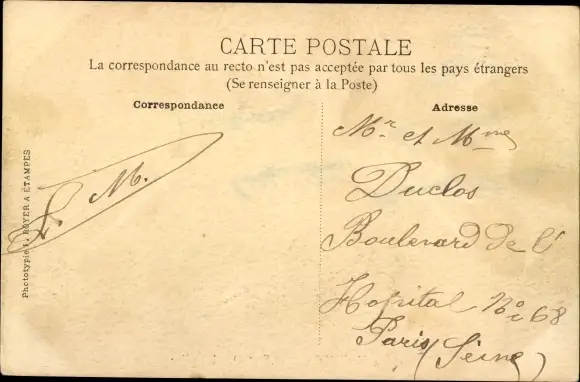 CARTE POSTALE
La correspondance au recto n'est pas acceptée par tous les pays étrangers
(Se renseigner à la Poste)
Correspondance
Adresse
Phototypie L. ROYER A ÉTAMPES
L. M.
Mr et Mme
Duclos
Boulevard de l'
Hopital No 68
Paris (Seine)